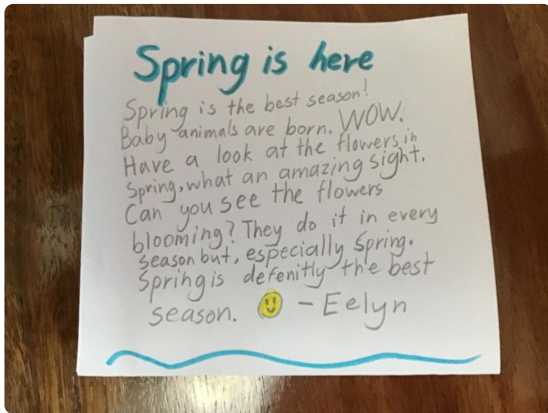 Spring is here
Spring is the best season!
Baby animals are born. WOW.
Have a look at the flowers in
Spring, what an amazing sight.
Can you see the flowers
blooming? They do it in every
season but, especially Spring.
Spring is defenitly the best
season. - Eelyn